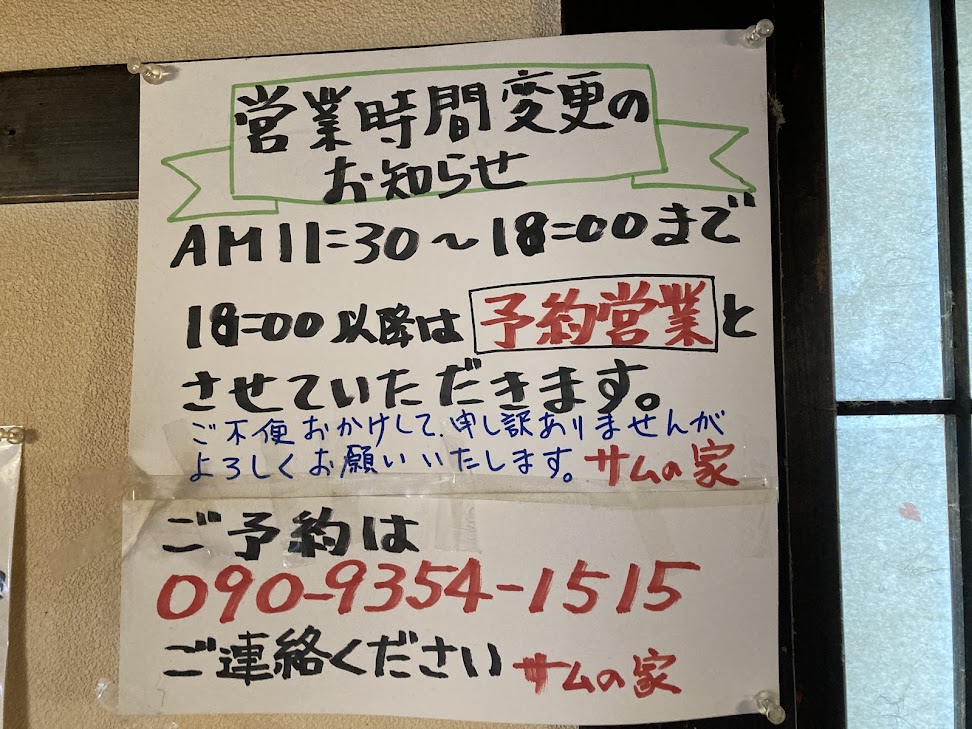 営業時間変更の
お知らせ
AM11:30～18:00まで
18:00以降は予約営業と
させていただきます。
ご不便おかけして、申し訳ありませんが
よろしくお願いいたします。サムの家
ご予約は
090-9354-1515
ご連絡ください サムの家